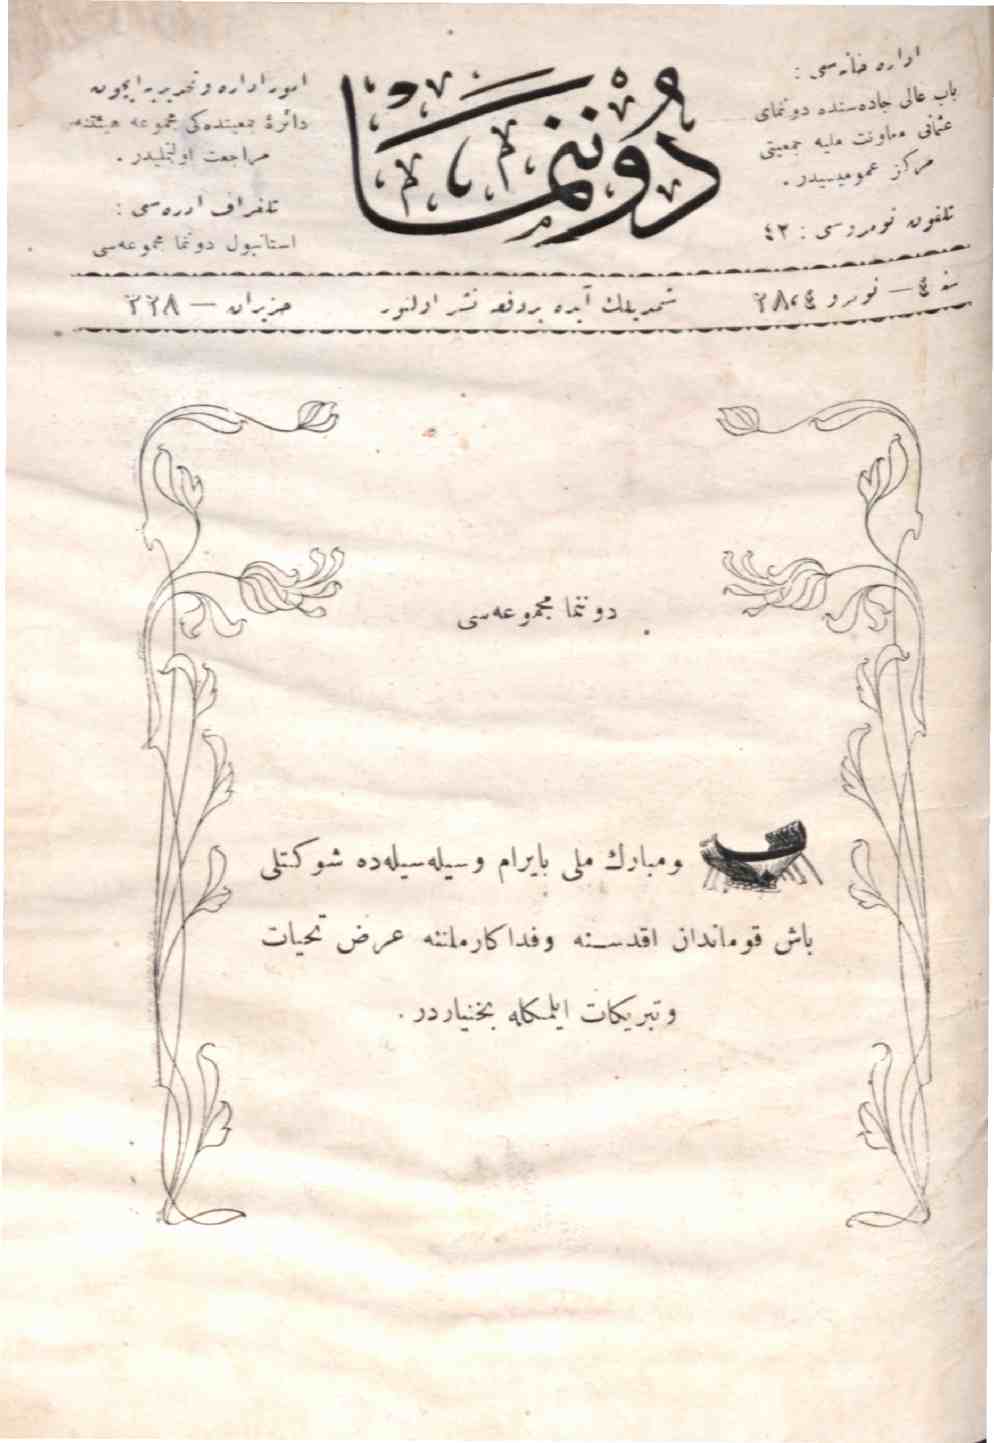 دوننما
اداره خانه‌سی :
باب عالی جاده‌سنده دوننمای
عثمانی معاونت ملیه جمعیتی
مركز عمومیسیدر .
تلفون نومروسی : ٤٢
امور اداره و تحریریه ایچون
دائرهٔ جمعیتده‌كی مجموعه هیئتنه
مراجعت اولنملیدر .
تلغراف آدره‌سی :
استانبول دوننما مجموعه‌سی
٤ — نومرو
شمدیلك آیده بر دفعه نشر اولنور
حزیران — ٣٢٨
دوننما مجموعه‌سی
و مبارك ملی بایرام وسیله‌سیله‌ده شوكتلی
باش قوماندان اقدسنه وفداكار ملتنه عرض تحیات
و تبریكات ایلمكله بختیاردر .